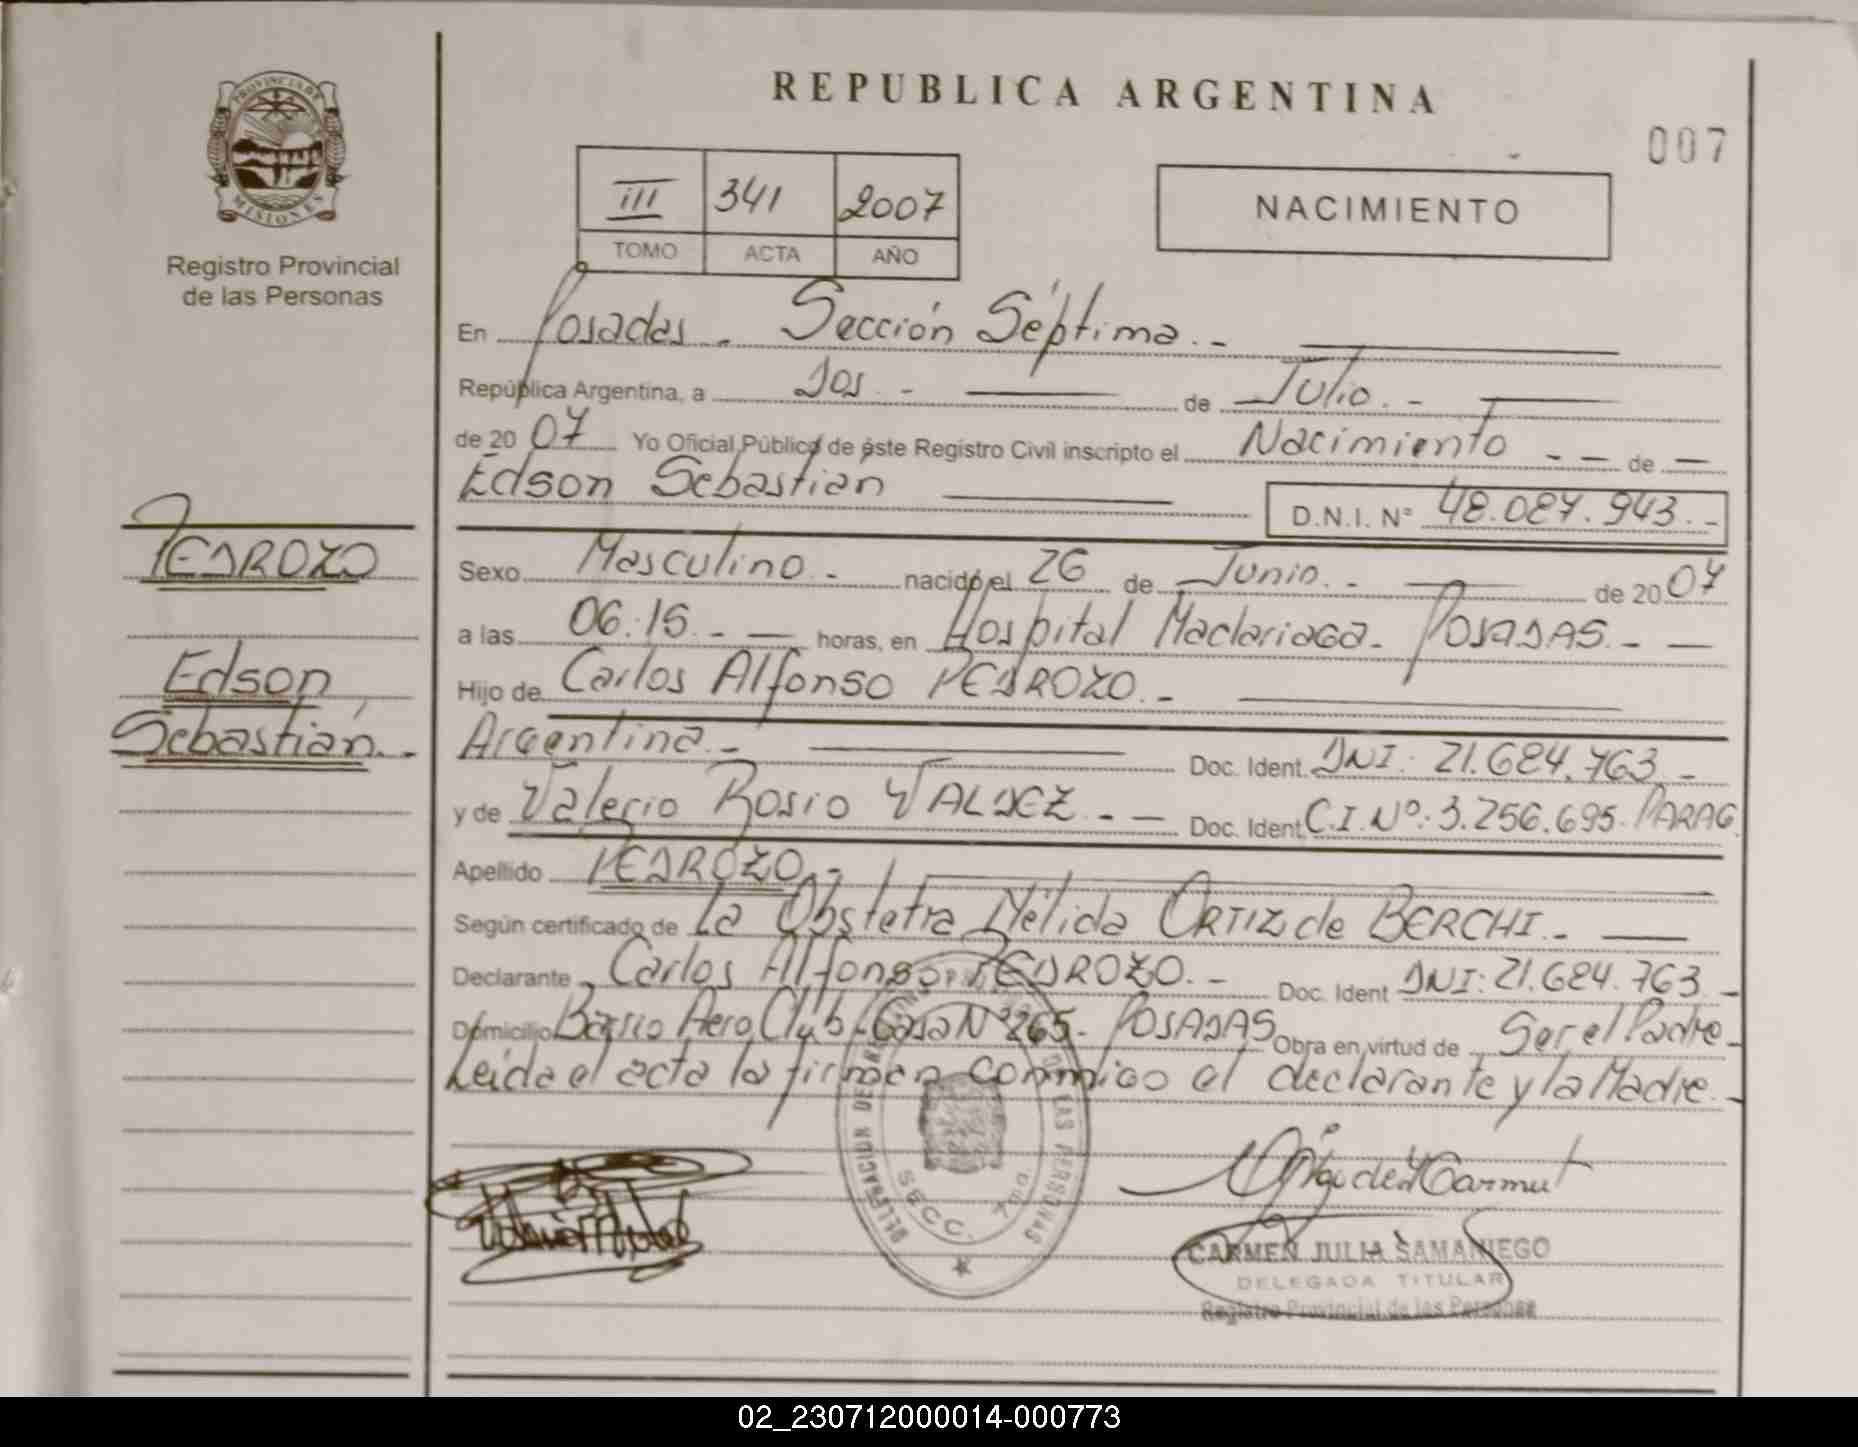 PROVINCIA DE
MISIONES
Registro Provincial
de las Personas
REPUBLICA ARGENTINA
007
III 341 2007
TOMO ACTA AÑO
NACIMIENTO
En Posadas - Sección Séptima.-
República Argentina, a Dos.- de Julio.-
de 2007 Yo Oficial Público de éste Registro Civil inscripto el Nacimiento - - de -
Edson Sebastián
D.N.I. Nº 48.087.943.-
PEDROZO
Edson
Sebastián.-
Sexo Masculino.- nacido el 26 de Junio.- de 2007
a las 06:15.- - horas, en Hospital Madariaga- POSADAS.- -
Hijo de Carlos Alfonso PEDROZO.-
Argentina.- Doc. Ident. DNI: 21.684.763.-
y de Valeria Rosio VALDEZ.- - Doc. Ident. C.I.Nº: 3.256.695- PARAG.
Apellido PEDROZO.-
Según certificado de La Obstetra Nélida ORTIZ de BERCHI.-
Declarante Carlos Alfonso PEDROZO.- Doc. Ident DNI: 21.684.763.-
Domicilio Barrio Aero Club- Casa Nº 265- POSADAS Obra en virtud de Ser el Padre.-
Leída el acta la firman conmigo el declarante y la Madre.-
DELEGACION DE REGISTRO PROVINCIAL DE LAS PERSONAS
SECC. 7
CARMEN JULIA SAMANIEGO
DELEGADA TITULAR
Registro Provincial de las Personas
02_230712000014-000773